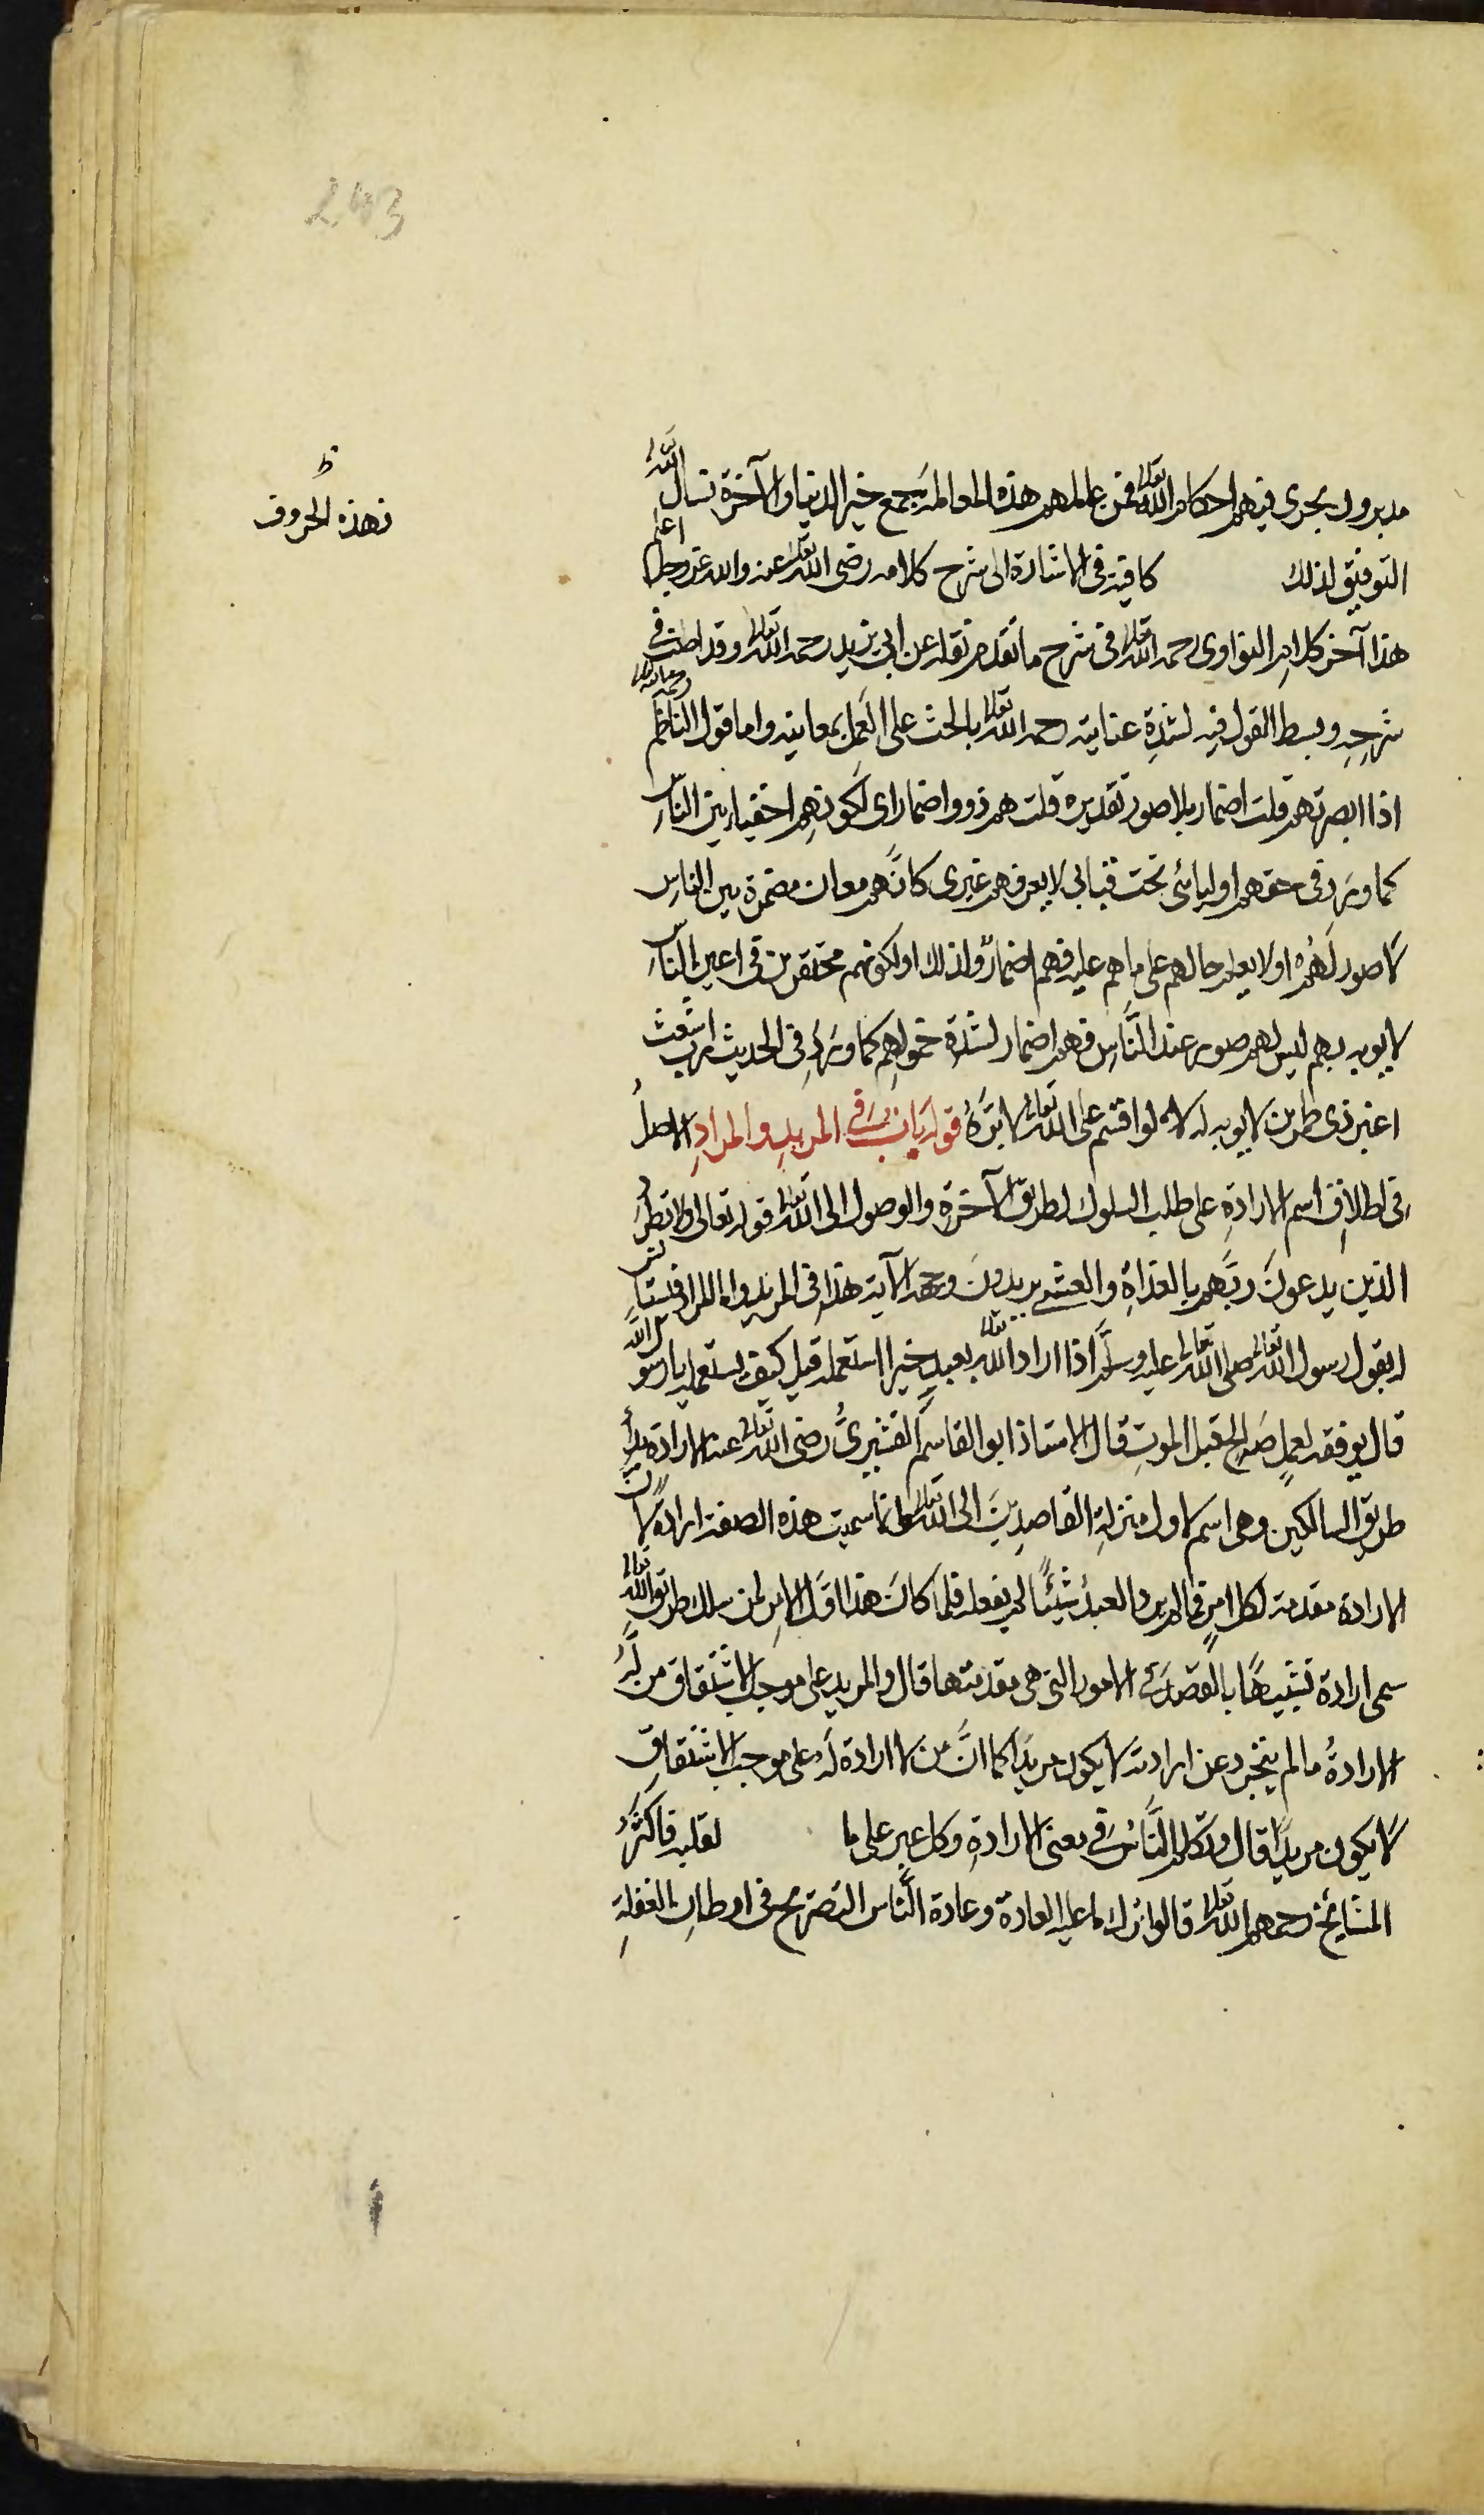 243
مدبرون يجرى فيهم احكام الله تعالى فمن عاملهم هذه المعاملة يجمع خير الدنيا والآخرة نسال الله
التوفيق لذلك كافية فى الاشارة الى شرح كلامه رضى الله تعالى عنه والله عز وجل اعلم
ط
فهذه الحروف
هذا آخر كلام النواوى رحمه الله تعالى فى شرح ما تقدم نقله عن ابى يزيد رحمه الله تعالى وقد اطنب فى
شرحه وبسط القول فيه لشدة عنايته رحمه الله تعالى بالحث على العمل بمعانيه واما قول الناظم رحمه الله تعالى
اذا ابصرتهم قلت اضمار بلا صور تقديره قلت هم ذووا ضمار اى لكونهم اخفياء بين الناس
كما ورد فى حقهم اوليائى تحت قبابى لا يعرفهم غيرى كانهم معان مضمرة بين الناس
لا صور لهم او لا يعلم حالهم على ما هم عليه فهم اضمار لذلك او لكونهم محتقرين فى اعين الناس
لا يوبه بهم ليس لهم صور عند الناس فهم اضمار لشدة خمولهم كما ورد فى الحديث رب اشعث
اغبر ذى طمرين لا يوبه له لو اقسم على الله تعالى لابره قوله باب فى المريد والمراد الاصل
فى اطلاق اسم الارادة على طلب السلوك لطريق الآخرة والوصول الى الله تعالى قوله تعالى ولا تطرد
الذين يدعون ربهم بالغداة والعشى يريدون وجهه الآية هذا فى المريد واما المراد فيستانس
له بقول رسول الله تعالى صلى الله تعالى عليه وسلم اذا اراد الله تعالى بعبد خيرا استعمله قيل كيف يستعمله يا رسول الله
قال يوفقه لعمل صالح قبل الموت قال الاستاذ ابو القاسم القشيرى رضى الله تعالى عنه الارادة بدأ
طريق السالكين وهى اسم لاول منزلة القاصدين الى الله تعالى وانما سميت هذه الصفة ارادة لان
الارادة مقدمة لكل امر فما لم يرد العبد شيئا لم يفعله فلما كان هذا اول الامر لمن سلك طريق الله تعالى
سمى ارادة تشبيها بالقصد فى الامور التى هى مقدمتها قال والمريد على موجب الاشتقاق من له
الارادة ما لم يتجرد عن ارادته لا يكون مريدا كما ان من لا ارادة له على موجب الاشتقاق
لا يكون مريدا قال وتكلم الناس فى معنى الارادة وكل عبر على ما لقلبه فاكثر
المشايخ رحمهم الله تعالى قالوا ترك ما عليه العادة وعادة الناس التصريح فى اوطان الغفلة